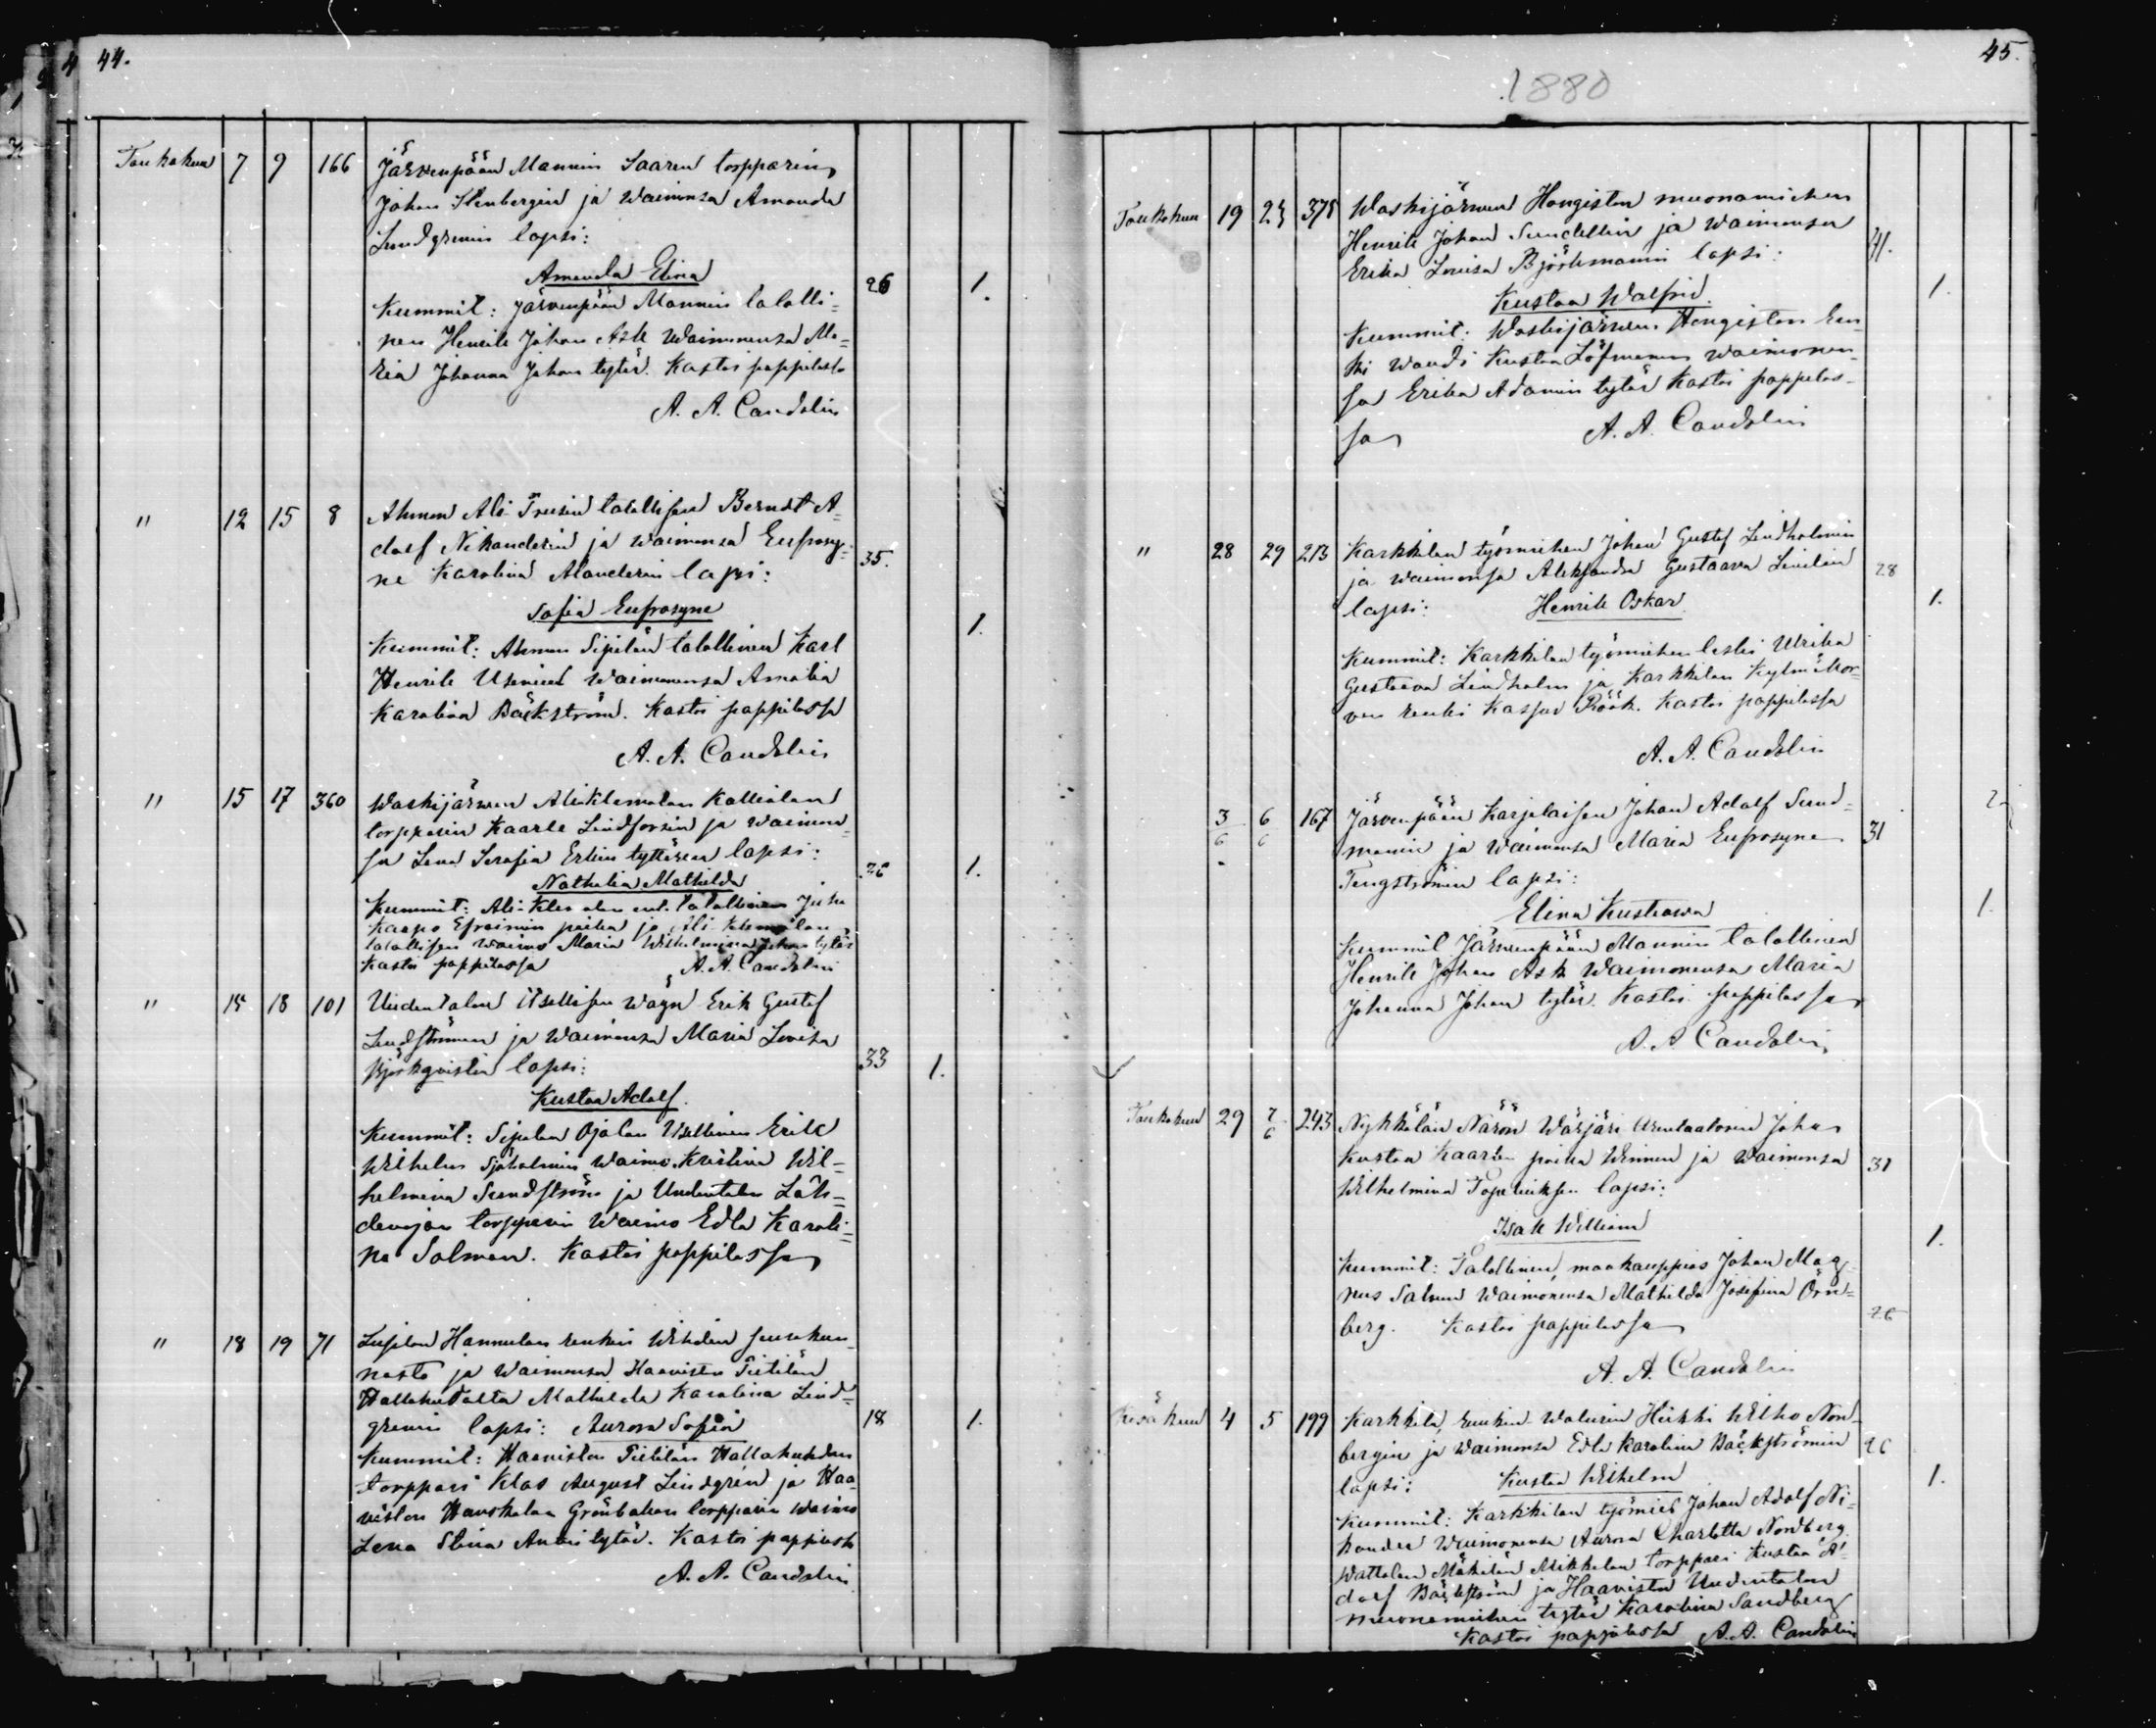 44.
Toukokuu 7 9 166 Järvenpään Mannin Saaren torpparin
Johan Stenbergin ja Waimonsa Amanda
Lundgrenin lapsi:
Amanda Elina 26 1.
Kummit: Järvenpään Mannin talolli-
nen Henrik Johan Ask Waimonensa Ma-
ria Johanna Johan tytär. Kastoi pappilassa
A. A. Candolin
" 12 15 8 Ahmon Ali talollisen Berndt A-
dolf Nikanderin ja Waimonsa Eufrosy-
ne Karolina lapsi: 35.
Sofia Eufrosyne
1.
Kummit: Ahmon Sipilän talollinen Karl
Henrik Waimonensa Amalia
Karolina Bäckström. Kastoi pappilassa
A. A. Candolin
" 15 17 360 Waskijärwen Aliklemolan Kallialan
torpparin Kaarle Lindforsin ja Waimon-
sa Lena Serafia tyttären lapsi:
Nathalia Mathilda 26 1.
Kummit: Ali-Klemolan ent. talollinen Juha
Kaapo Efraimin poika ja Ali Klemolan
talollisen waimo Maria Wilhelmina Johan tytär
Kastoi pappilassa A. A. Candolin
" 15 18 101 Uudentalon itsellisen Erik Gustaf
Lindströmin ja Waimonsa Maria Lovisa
Björkqvistin lapsi: 33 1.
Kustaa Adolf.
Kummit: Sipilan Ojalan Itsellinen Erik
Wilhelm Sjöholmin Waimo Kristina Wil-
helmina Sundström ja Uudentalon Läh-
deojan torpparin Waimo Edla Karoli-
na Salman. Kastoi pappilassa
" 18 19 71 Hannulan renkin Wihdin seurakun-
nasta ja Waimonsa Haawiston Pietilän
Hallakudalta Mathilda Karolina Lind-
grenin lapsi: Aurora Sofia 18 1.
Kummit: Haawiston Pietilän
torppari Klas August Lindgrén ja Haa-
wiston torpparin waimo
Lena Stina Antin tytär. Kastoi pappilassa
A. A. Candolin
45.
1880
Toukokuu 19 23 378 Waskijärwen Hongiston muonamiehen
Henrik Johan Sundellin ja Waimonsa
Erika Lovisa Björkmanin lapsi: 41.
Kustaa Walfrid. 1.
Kummit: Waskijärwen Hongiston
wouti Kustaa Löfmanin waimonen-
sa Erika Adamin tytär Kastoi pappilas-
sa A. A. Candolin
" 28 29 213 Karkkilan työmiehen Johan Gustaf Lindholmin
ja waimonsa Aleksandra Gustaava Lindin 28
lapsi: Henrik Oskar 1.
Kummit: Karkkilan työmiehen leski Ulrika
Gustaava Lindholm ja Karkkilan
renki Kasper Röök. Kastoi pappilassa
A. A. Candolin
3/6 6/6 167 Järvenpään Karjalaisen Johan Adolf Sund-
manin ja Waimonsa Maria Eufrosyne 31
Tengströmin lapsi:
Elina Kustaawa 1.
Kummit Järwenpään Mannin talollinen
Henrik Johan Ask Waimonensa Maria
Johanna Johan tytär. Kastoi pappilassa
A. A. Candolin
Toukokuu 29 7/6 243 Nyhkälän Johan
Kustaa Kaarlen poika ja Waimonsa 31
Wilhelmina lapsi:
Isak William
1.
Kummit: Talollinen, maakauppias Johan Mag-
nus Waimonensa Mathilda Josefina Örn-
berg. Kastoi pappilassa 26
A. A. Candolin
Kesäkuu 4 5 199 Karkkila, walurin Heikki Nord-
bergin ja Waimonsa Edla Karolina Bäckströmin 26
lapsi: Kustaa Wilhelm 1.
Kummit: Karkkilan työmies Johan Adolf Ni-
kander Waimonensa Aurora Charlotta Nordberg.
Wattolan Mäkilän torppari Kustaa A-
dolf Bäckström ja Haawiston Uudentalon
muonamiehen tytär Karolina Sandberg
Kastoi pappilassa A. A. Candolin